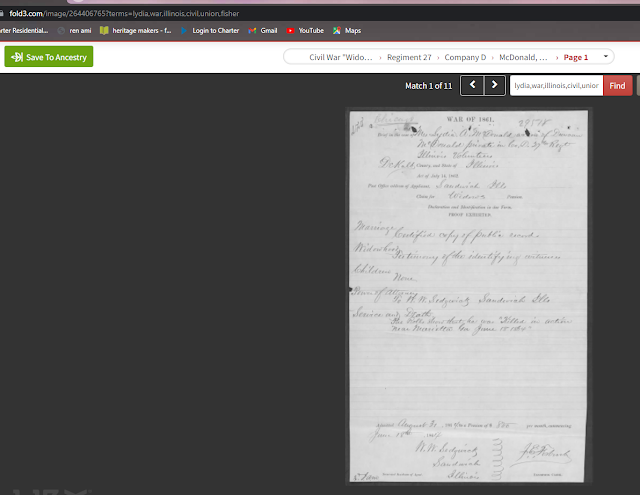 fold3.com/image/264406765?terms=lydia,war,illinois,civil,union,fisher
rter Residential... ren ami heritage makers - f... Login to Charter Gmail YouTube Maps
Save To Ancestry
Civil War "Wido... › Regiment 27 › Company D › McDonald, ... › Page 1
Match 1 of 11 lydia,war,illinois,civil,unior Find
WAR OF 1861.
29578
Mrs Lydia A. McDonald widow of
McDonald private in Co. D. 27th Regt
Illinois Volunteers
DeKalb, County and State of Illinois
Act of July 14, 1862
Post Office address of Applicant, Sandwich Ills
Claim for Widow's Pension.
Declaration and Identification in due Form.
PROOF EXHIBITED.
Marriage
Certified copy of public record.
Widowhood
Testimony of the identifying witnesses
Children
None
Power of Attorney
To W. W. Sedgwick Sandwich Ills
Service and Death
The Rolls show that he was "Killed in action
near Marietta Ga June 18 1864"
August 31 a Pension of $ 8.00 per month, commencing
June 18th 1864
W. W. Sedgwick
Sandwich
Illinois